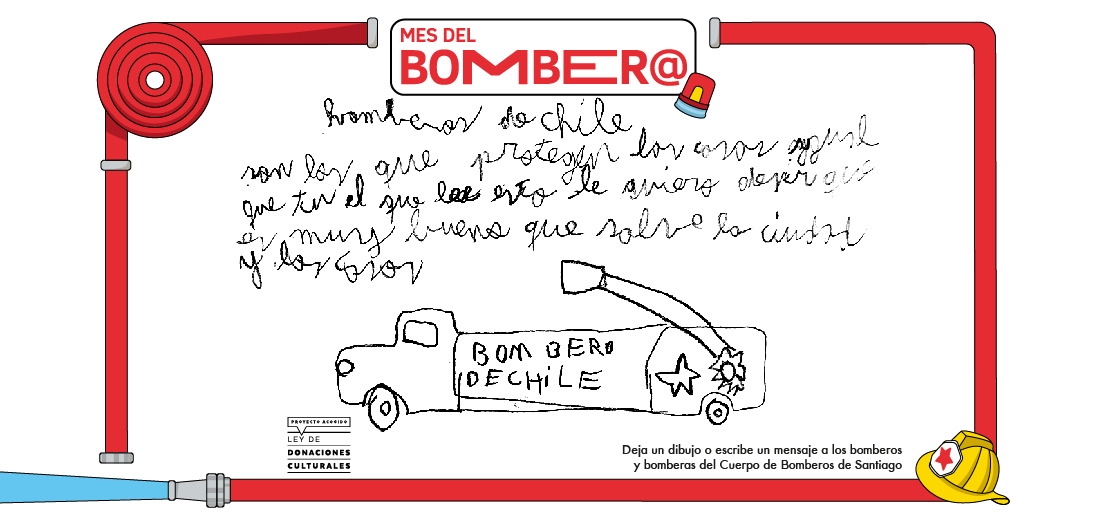 MES DEL
BOMBER@
bomberos de chile
son los que protegen los casas
que tu el que esto le quiero dejar que
es muy bueno que salve la ciudad
y las casas
BOMBERO
DECHiLE
PROYECTO ACOGIDO
LEY DE
DONACIONES
CULTURALES
Deja un dibujo o escribe un mensaje a los bomberos
y bomberas del Cuerpo de Bomberos de Santiago